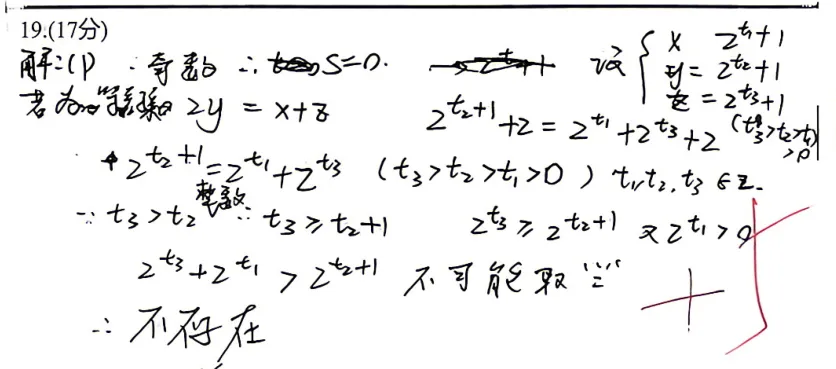 19.(17分)
解:(1) ∵奇数 ∴ S=0. 设 { x 2^{t₁}+1
y = 2^{t₂}+1
z = 2^{t₃}+1
若为 2y = x+z 2^{t₂+1}+2 = 2^{t₁}+2^{t₃}+2 (t₃>t₂>t₁>0)
2^{t₂+1} = 2^{t₁}+2^{t₃} (t₃>t₂>t₁>0) t₁,t₂,t₃ ∈Z.
∵ t₃>t₂ 整数 ∴ t₃ ≥ t₂+1 2^{t₃} ≥ 2^{t₂+1} 又 2^{t₁}>0
2^{t₃}+2^{t₁} > 2^{t₂+1} 不可能取"="
∴ 不存在